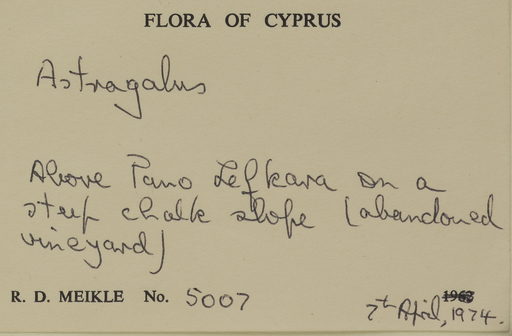 FLORA OF CYPRUS
Astragalus
Above Pano Lefkara on a
steep chalk slope (abandoned
vineyard)
R. D. MEIKLE No. 5007
7th April, 1974.